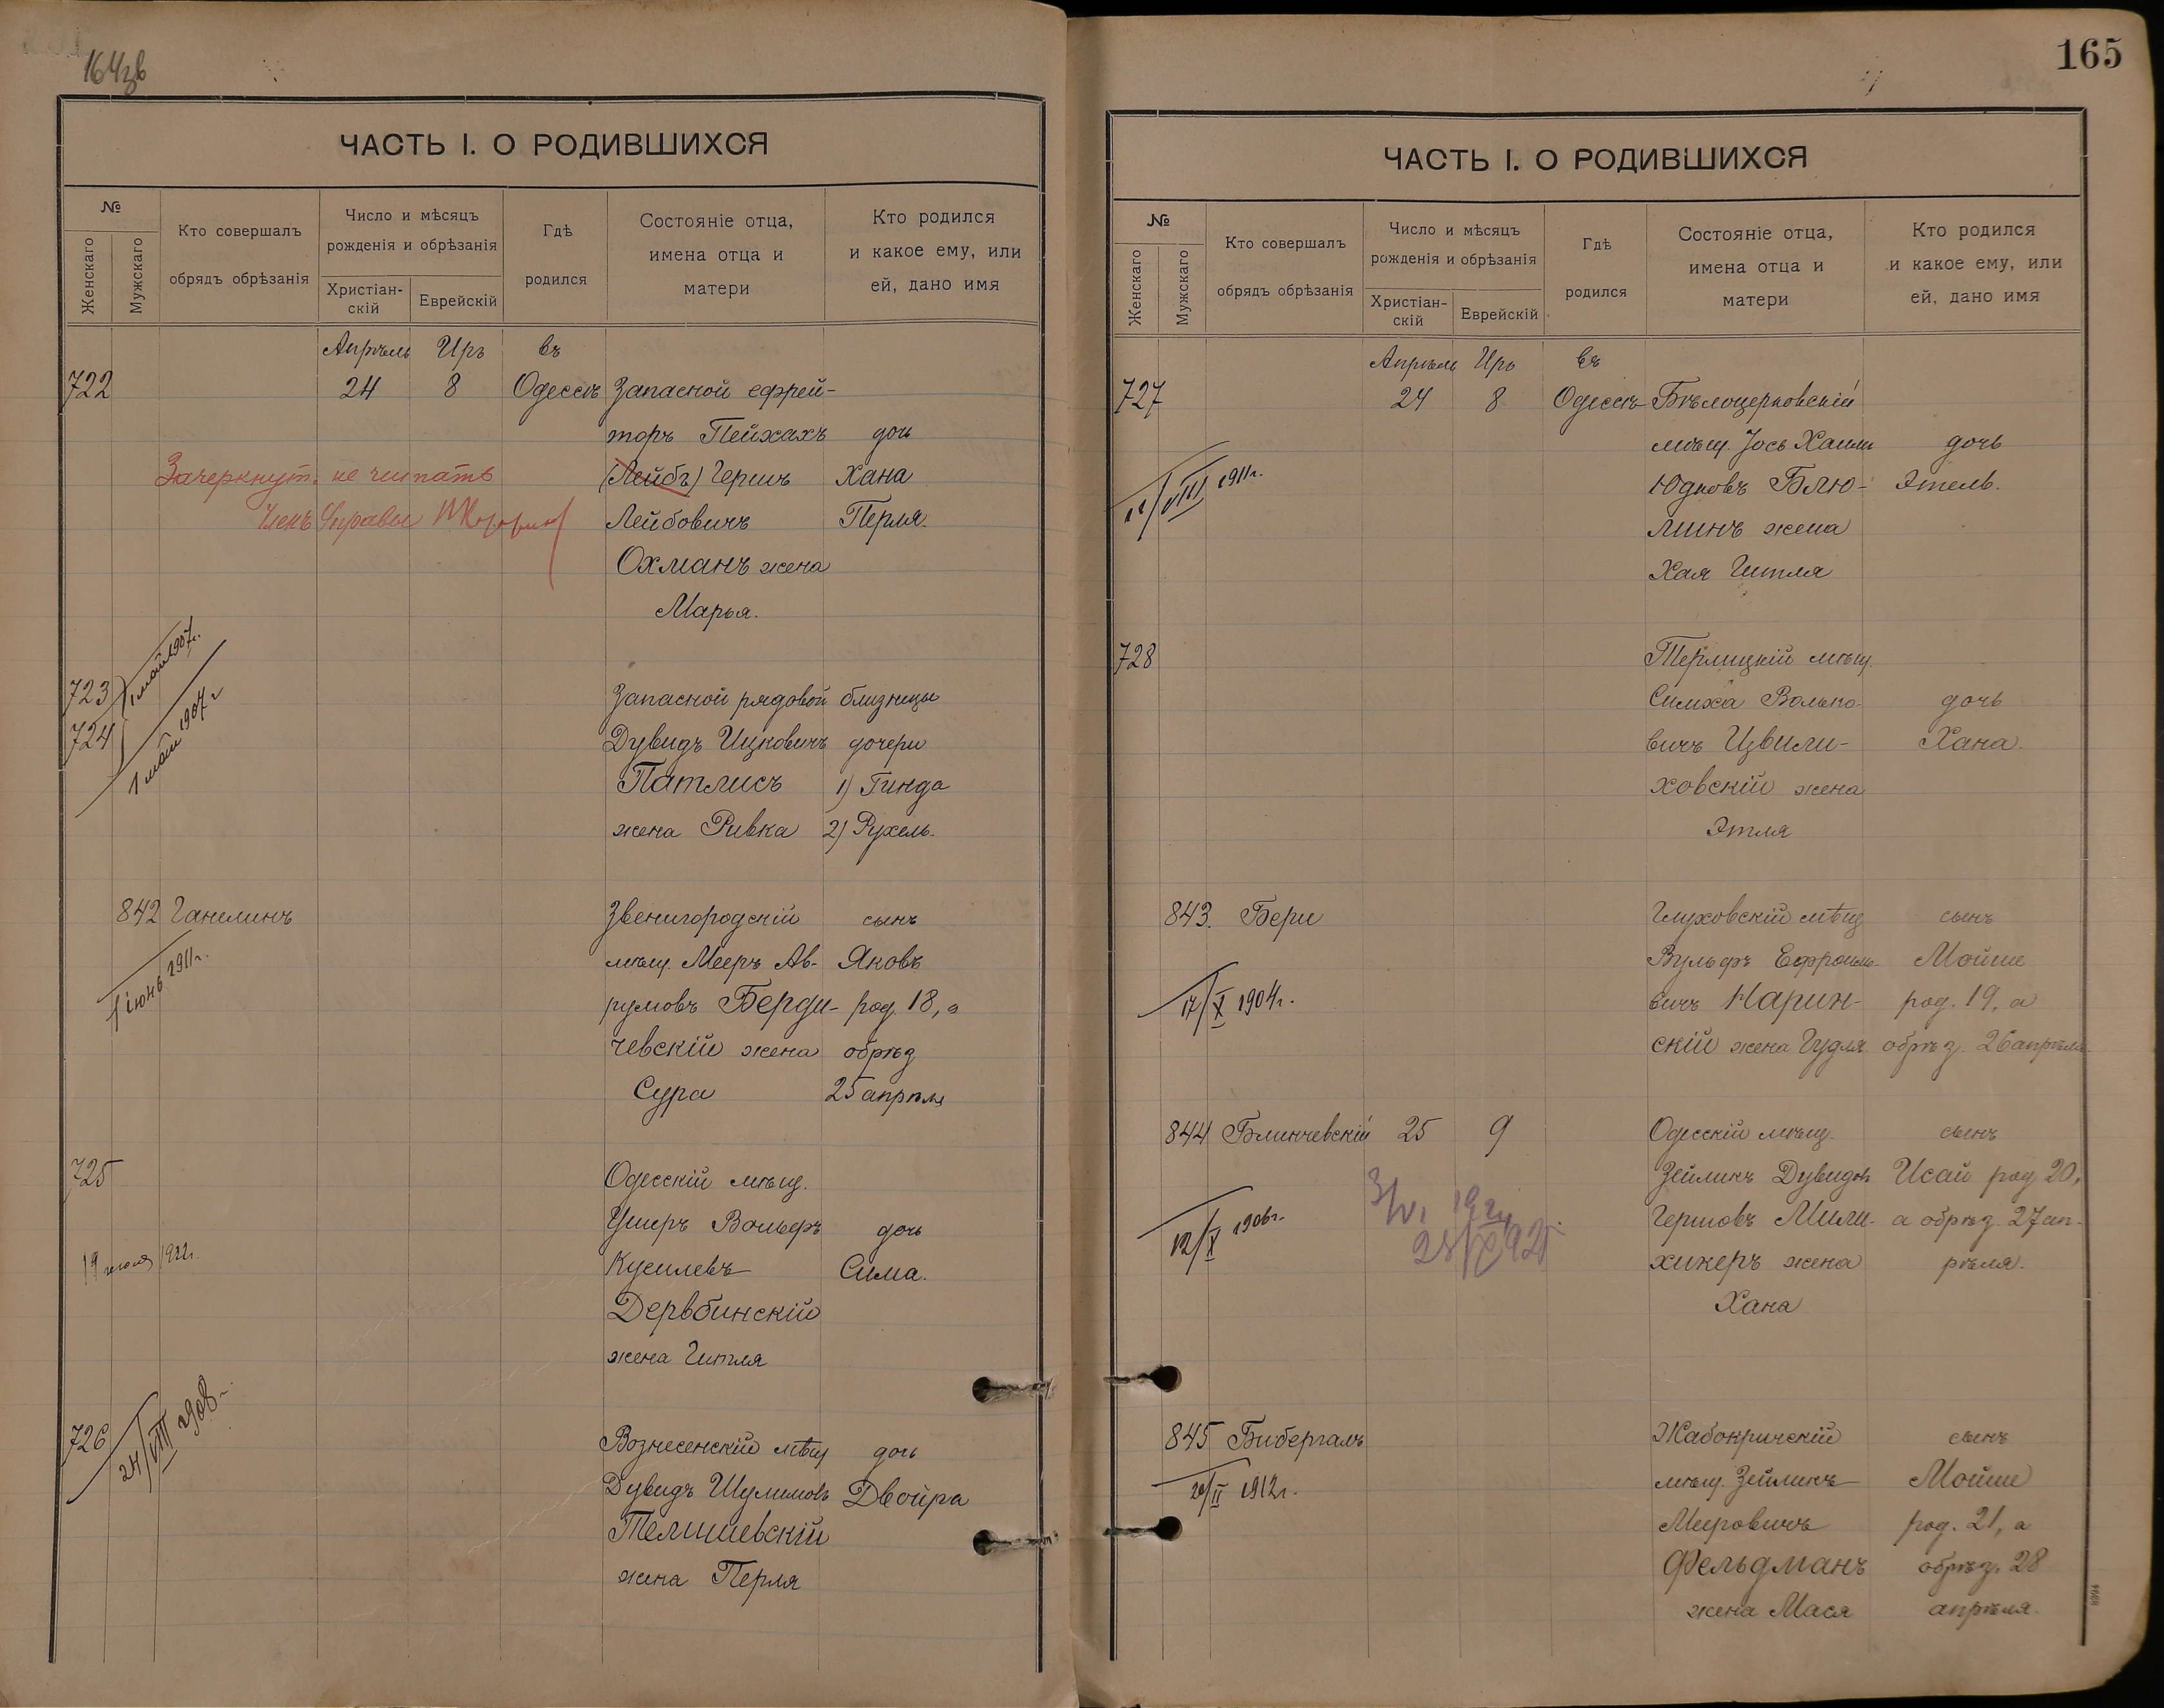 164зв
ЧАСТЬ I. О РОДИВШИХСЯ
№
Женскаго
Мужскаго
Кто совершалъ
обрядъ обрѣзанія
Число и мѣсяцъ
рожденія и обрѣзанія
Христіан-
скій
Еврейскій
Гдѣ
родился
Состояніе отца,
имена отца и
матери
Кто родился
и какое ему, или
ей, дано имя
Апрѣль Иръ въ
722 24 8 Одессѣ Запасной ефрей-
торъ Пейхахъ дочь
Зачеркнут. не читать (Лейбъ) Гершъ Хана
Членъ Управы Лейбовичъ Перля.
Охманъ жена
Марья.
723 1 май 1907г. Запасной рядовой близнецы
724 1 май 1907г Дувидъ Ицковичъ дочери
Патлисъ 1) Гинда
жена Ривка 2) Рухель.
842 Ганелинъ Звенигородскій сынъ
1 іюнь 1911г. мѣщ. Мееръ Ав- Яковъ
румовъ Берди- род. 18, а
чевскій жена обрѣз
Сура 25 апрѣля
725 Одесскій мѣщ.
Ушеръ Вольфъ дочь
19 1922г. Кусилевъ Сима.
Дервбинскій
жена Гитля
726 24/VIII 1908г. Вознесенскій мѣщ дочь
Дувидъ Шулимовъ Двойра
Телишевскій
жена Перля
165
ЧАСТЬ I. О РОДИВШИХСЯ
№
Женскаго
Мужскаго
Кто совершалъ
обрядъ обрѣзанія
Число и мѣсяцъ
рожденія и обрѣзанія
Христіан-
скій
Еврейскій
Гдѣ
родился
Состояніе отца,
имена отца и
матери
Кто родился
и какое ему, или
ей, дано имя
Апрѣль Иръ въ
727 24 8 Одессѣ Бѣлоцерковскій
мѣщ. Іось Хаимъ дочь
12/VIII 1911г. Юдковъ Блю- Этель.
минъ жена
Хая Гитля
728 Терлицкій мѣщ.
Симха Волько- дочь
вичъ Цвили- Хана.
ховскій жена
Этля
843. Бери Глуховскій мѣщ сынъ
Вульфъ Ефроимо- Мойше
17/X 1904г. вичъ Нарин- род. 19, а
скій жена Гудля обрѣз. 26 апрѣля
844 Блинчевскій 25 9 Одесскій мѣщ. сынъ
Зейликъ Дувидъ Исай род 20,
12/X 1906г. Гершовъ Мили- а обрѣз. 27 ап-
хикеръ жена рѣля.
Хана
845 Бибергалъ Жабокричскій сынъ
20/II 1912г. мѣщ. Зейликъ Мойше
Мееровичъ род. 21, а
Фельдманъ обрѣз. 28
жена Мася апрѣля.